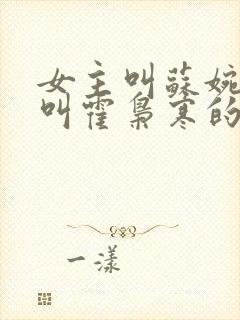 女主叫蘇婉
叫霍梟寒的
一漾